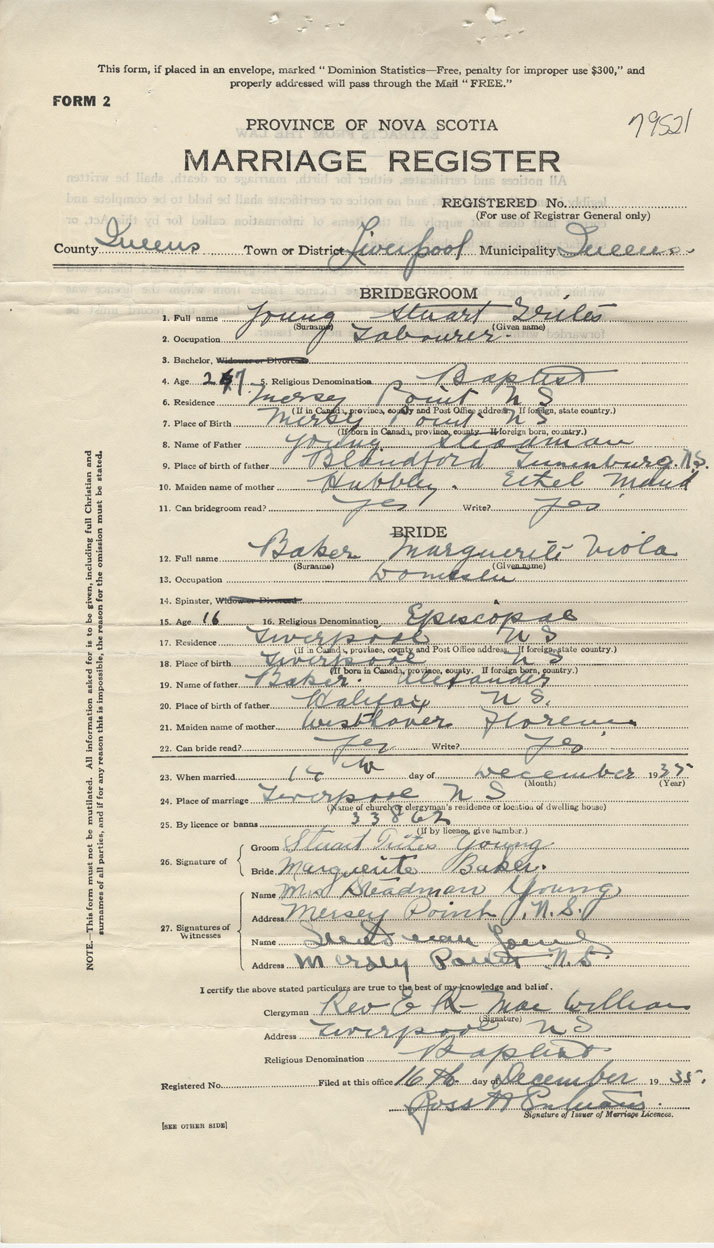 This form, if placed in an envelope, marked " Dominion Statistics—Free, penalty for improper use $300," and
properly addressed will pass through the Mail " FREE."
FORM 2
79521
PROVINCE OF NOVA SCOTIA
MARRIAGE REGISTER
REGISTERED No.
(For use of Registrar General only)
County Queens Town or District Liverpool Municipality Queens
BRIDEGROOM
1. Full name Young Stuart Trites
(Surname) (Given name)
2. Occupation Labourer
3. Bachelor, Widower or Divorced
4. Age 27 5. Religious Denomination Baptist
6. Residence Mersey Point N S
(If in Canada, province, county and Post Office address. If foreign, state country.)
7. Place of Birth Mersey Point N S
(If born in Canada, province, county. If foreign born, country.)
8. Name of Father Young Steadman
9. Place of birth of father Blandford Lunenburg. N.S.
10. Maiden name of mother Hubbley. Ethel Maud
11. Can bridegroom read? Yes Write? Yes
BRIDE
12. Full name Baker Marguerite Viola
(Surname) (Given name)
13. Occupation Domestic
14. Spinster, Widow or Divorced
15. Age 16 16. Religious Denomination Episcopal
17. Residence Liverpool N S
(If in Canada, province, county and Post Office address. If foreign, state country.)
18. Place of birth Liverpool N S
(If born in Canada, province, county. If foreign born, country.)
19. Name of father Baker. Alexander
20. Place of birth of father Halifax N S.
21. Maiden name of mother Westhaver Florence
22. Can bride read? Yes Write? Yes
23. When married day of December 1935
(Month) (Year)
24. Place of marriage Liverpool N S
(Name of church or clergyman's residence or location of dwelling house)
25. By licence or banns 33862
(If by licence, give number.)
26. Signature of
Groom Stuart Trites Young
Bride Marguerite Baker.
27. Signatures of Witnesses
Name Mrs Steadman Young
Address Mersey Point, N.S.
Name Steadman Young
Address Mersey Point N.S.
I certify the above stated particulars are true to the best of my knowledge and belief.
Clergyman Rev E R MacWilliam
(Signature)
Address Liverpool N S
Religious Denomination Baptist
Registered No. Filed at this office 16th day of December 1935.
Ross H
Signature of Issuer of Marriage Licences.
[SEE OTHER SIDE]
NOTE.—This form must not be mutilated. All information asked for is to be given, including full Christian and
surnames of all parties, and if for any reason this is impossible, the reason for the omission must be stated.